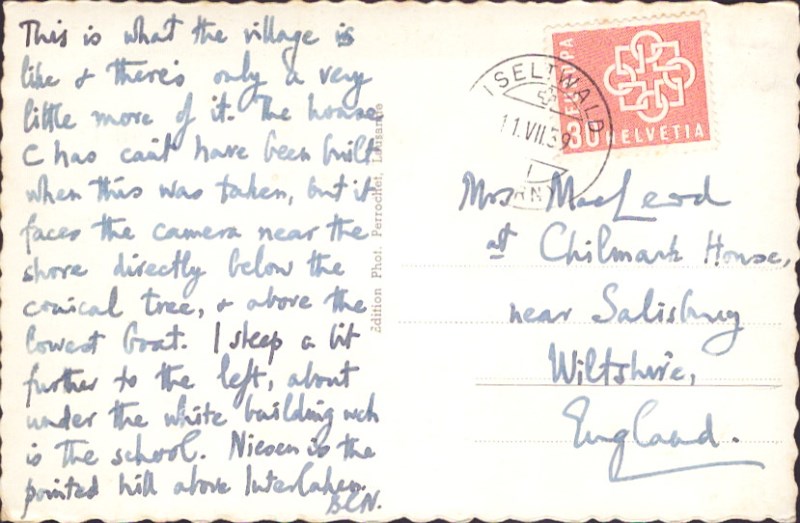 This is what the village is
like & there's only a very
little more of it. The house
C has can't have been built
when this was taken, but it
faces the camera near the
shore directly below the
conical tree, & above the
lowest boat. I sleep a bit
further to the left, about
under the white building wch
is the school. Niesen is the
pointed hill above Interlaken.
BCN.
Édition Phot. Perrochet, Lausanne
ISELTWALD
11.VII.59
EUROPA
30 HELVETIA
Mrs MacLeod
at Chilmark House,
near Salisbury
Wiltshire,
England.